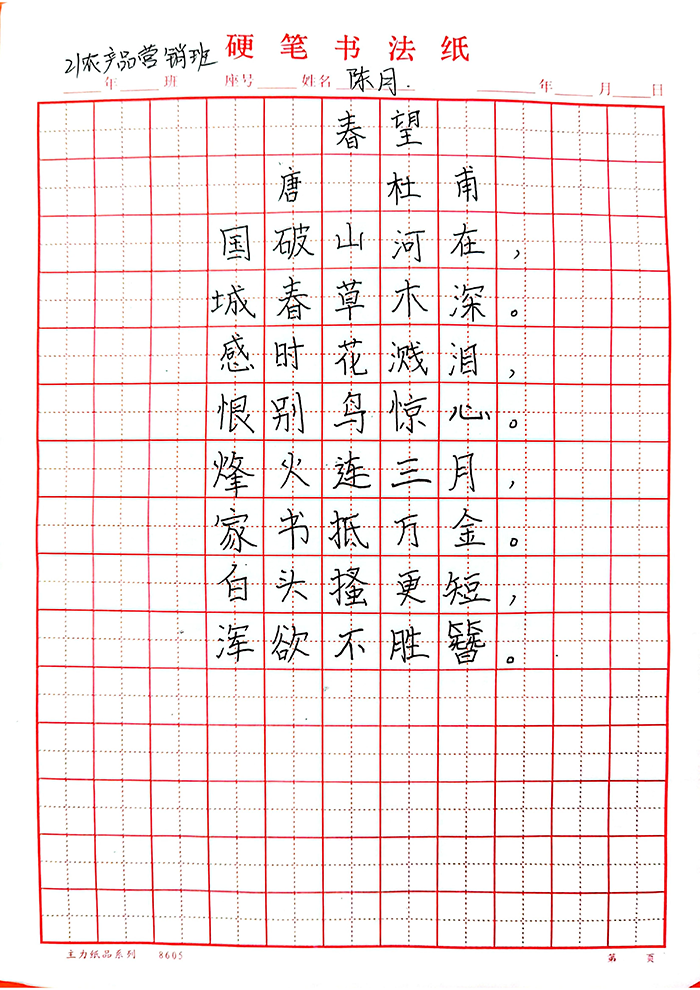 硬笔书法纸
21农产品营销班
年 班 座号 姓名 陈月. 年 月 日
春望
唐 杜甫
国破山河在，
城春草木深。
感时花溅泪，
恨别鸟惊心。
烽火连三月，
家书抵万金。
白头搔更短，
浑欲不胜簪。
主力纸品系列 8605 第 页